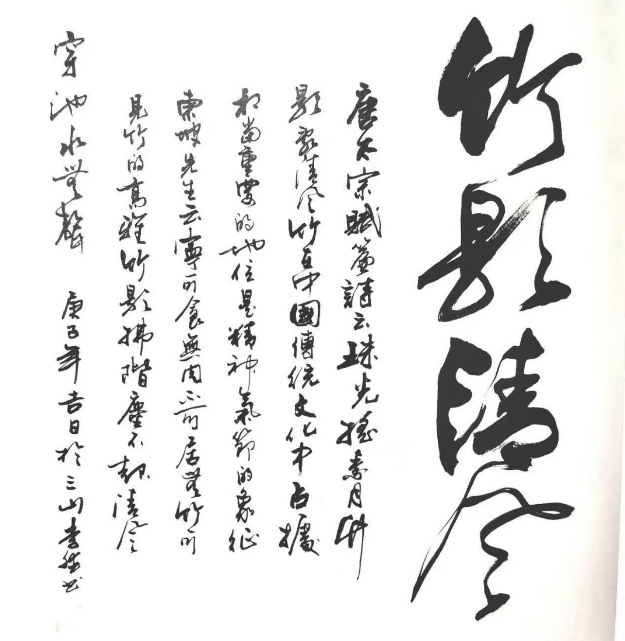 竹影清风
唐太宗賦簾詩云珠光摇素月竹
影乱清风竹在中國傳統文化中占據
相當重要的地位是精神氣節的象征
東坡先生云寧可食無肉不可居無竹可
見竹的高雅竹影拂階塵不起清风
穿池水無聲 庚子年吉日於三山李